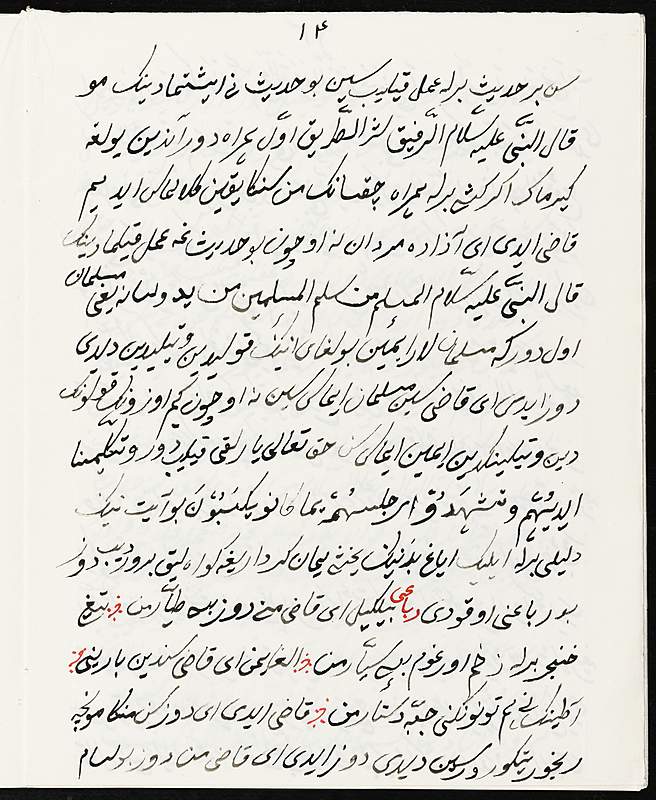 ۱۴
سن بر حدیث برله عمل قیلیب سین بو حدیث نی ایشیتمادینک مو
قال النبی علیه سلام الرفیق ثم الطریق اول همراه دور آندین یولغه
کیرماک اکر کشی برله همراه چقسانک من سنکا یقین کلالماس ایدیم
قاضی ایدی ای آزاده مردان نه اوچون بو حدیث غه عمل قیلمادینک
قال النبی علیه سلام المسلم من سلم المسلمین من ید ولسانه یعنی مسلمان
اول دور که مسلمانلار ایمین بولغای انینک قولیدین و تیلیدین دیدی
دوز ایدی ای قاضی سین مسلمان ایماس سین نه اوچون کیم اوزونک قولونک
دین و تیلینکدین ایمین ایماس سن حق تعالی یارلقی قیلیب دور وتکلمنا
ایدیهم وتشهد ارجلهم بما کانو یکسبون بو آیت نینک
دلیلی برله ایلیک ایاغ بدنینک یخشی یمان کرداریغه کواهلیق برور دیب دوز
بو رباعنی اوقودی رباعی بیلکیل ای قاضی من دوز طیارمن تیغ
خنجر برله زخم اورغوم سیارمن ای قاضی سندین بارینی
آطینک نی هم تونونکنی جبه دستارمن قاضی ایدی ای دوز سن منکا مونچه
رنجور یتکورورسین دیدی دوز ایدی ای قاضی من دوز بولسام